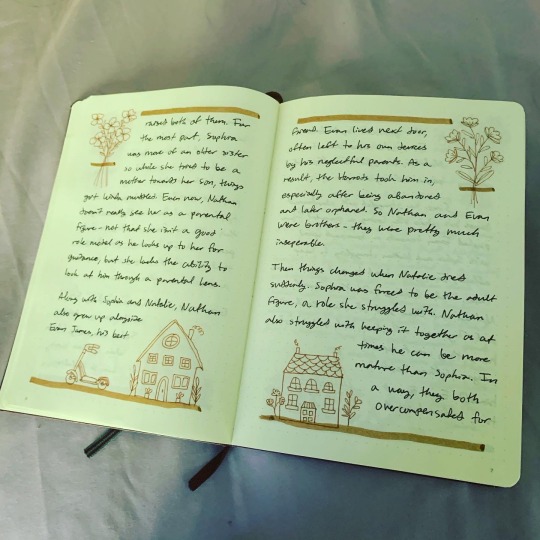 raised both of them. For
the most part, Sophia
was more of an older sister
so while she tried to be a
mother towards her son, things
got kinda muddled. Even now, Nathan
doesn't really see her as a parental
figure - not that she isn't a good
role model as he looks up to her for
guidance, but she lacks the ability to
look at him through a parental lens.
Along with Sophia and Natalie, Nathan
also grew up alongside
Evan James, his best
friend. Evan lived next door,
often left to his own devices
by his neglectful parents. As a
result, the took him in,
especially after being abandoned
and later orphaned. So Nathan and Evan
were brothers - they were pretty much
inseperable.
Then things changed when Natalie died
suddenly. Sophia was forced to be the adult
figure, a role she struggled with. Nathan
also struggled with keeping it together as at
times he can be more
mature than Sophia. In
a way, they both
overcompensated for